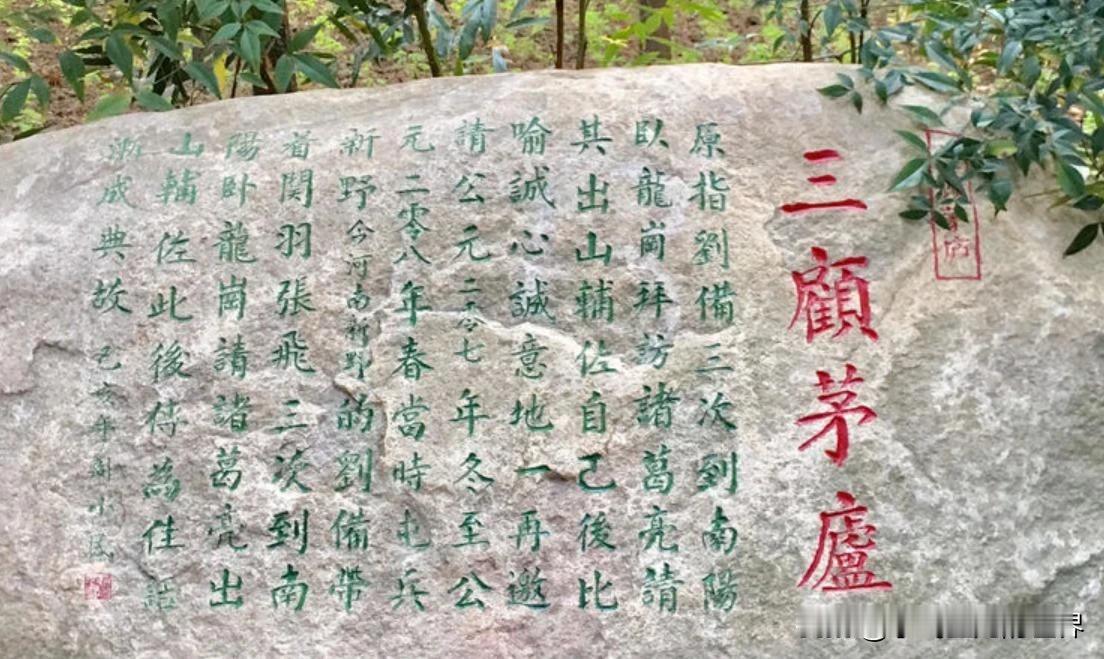 三顧茅廬
原指劉備三次到南陽
臥龍崗拜訪諸葛亮請
其出山輔佐自己後比
喻誠心誠意地一再邀
請公元二零七年冬至公
元二零八年春當時屯兵
新野今河南新野的劉備帶
着関羽張飛三次到南
陽卧龍崗請諸葛亮出
山輔佐此後傳為佳話
漸成典故 己亥年
界